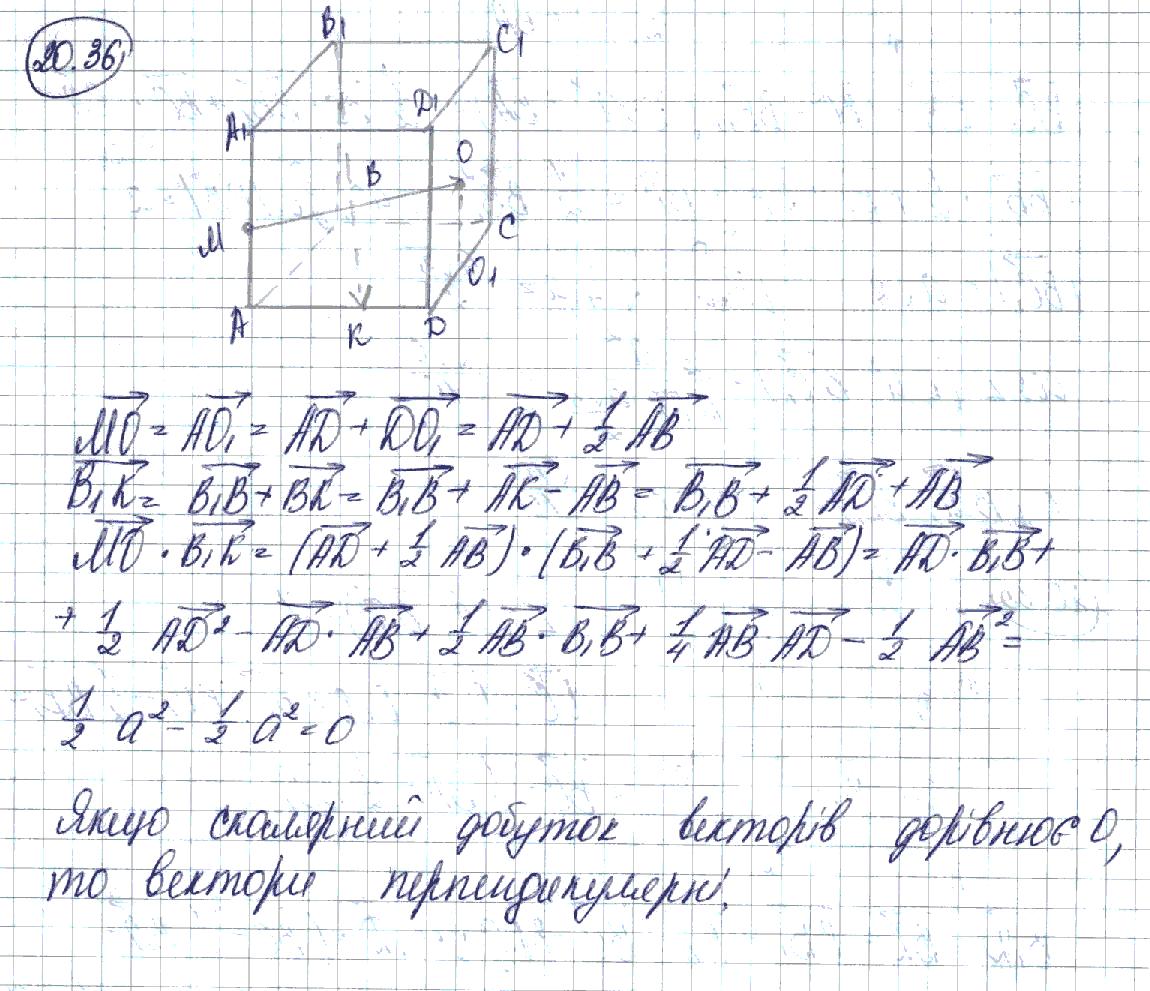 20.36
B₁
C₁
D₁
A₁
O
B
M
C
O₁
A
K
D
$\overrightarrow{MO} = \overrightarrow{AO_1} = \overrightarrow{AD} + \overrightarrow{DO_1} = \overrightarrow{AD} + \frac{1}{2} \overrightarrow{AB}$
$\overrightarrow{B_1K} = \overrightarrow{B_1B} + \overrightarrow{BK} = \overrightarrow{B_1B} + \overrightarrow{AK} - \overrightarrow{AB} = \overrightarrow{B_1B} + \frac{1}{2} \overrightarrow{AD} + \overrightarrow{AB}$
$\overrightarrow{MO} \cdot \overrightarrow{B_1K} = (\overrightarrow{AD} + \frac{1}{2} \overrightarrow{AB}) \cdot (\overrightarrow{B_1B} + \frac{1}{2} \overrightarrow{AD} - \overrightarrow{AB}) = \overrightarrow{AD} \cdot \overrightarrow{B_1B} +$
$+ \frac{1}{2} \overrightarrow{AD}^2 - \overrightarrow{AD} \cdot \overrightarrow{AB} + \frac{1}{2} \overrightarrow{AB} \cdot \overrightarrow{B_1B} + \frac{1}{4} \overrightarrow{AB} \cdot \overrightarrow{AD} - \frac{1}{2} \overrightarrow{AB}^2 =$
$\frac{1}{2} a^2 - \frac{1}{2} a^2 = 0$
Якщо скалярний добуток векторів дорівнює 0,
то вектори перпендикулярні.